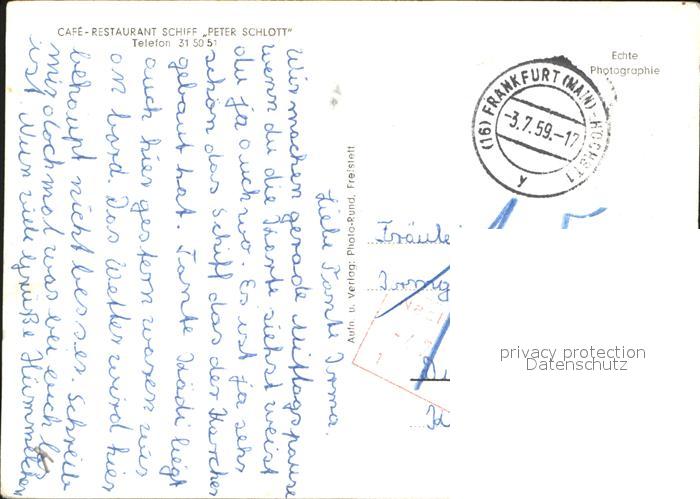 CAFÉ-RESTAURANT SCHIFF „PETER SCHLOTT"
Telefon 31 50 51
Echte
Photographie
(16) FRANKFURT (MAIN)-HÖCHST 1
-3.7.59.-17
y
Aufn. u. Verlag: Photo-Rund, Freistett
Liebe Tante Irma.
Wir machen gerade Mittagspause
wenn du die Karte siehst weist
du ja auch wo. Es ist ja sehr
schön das Schiff das der
gebaut hat. Tante Hädi liegt
auch hier gestern waren wir
an bord. Das Wetter wird hier
behaupt nicht besser. Schreibe
mir doch mal was bei euch los
ist. Nun viele grüße
Fräule
Irmg
privacy protection
Datenschutz